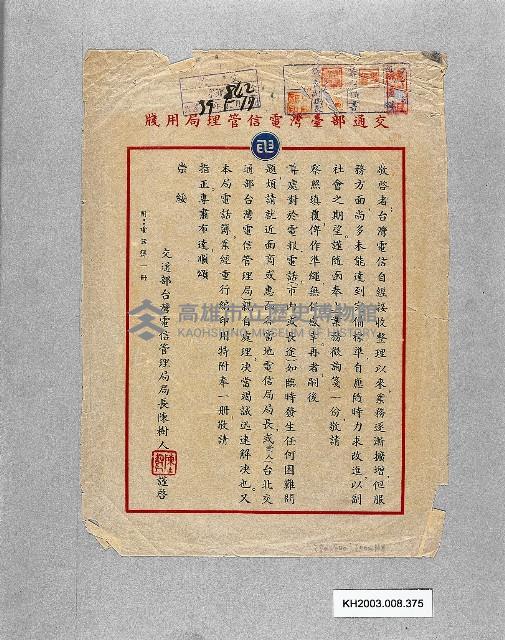 交通部臺灣電信管理局用牋
敬啓者台灣電信自經接收整理以來業務逐漸擴增但服
務方面尚多未能達到完備標準自應隨時力求改進以副
社會之期望謹隨函奉業務徵詢箋一份敬請
察照填復俾作準繩無任感幸再者嗣後
貴處對於電報電話市內或長途如臨時發生任何困難問
題煩請就近面商或惠當地電信局局長或台北交
通部台灣電信管理局親自處理决當竭誠迅速解决也又
本局電話簿業經重行編印用特附奉一册敬請
指正專肅布達順頌
崇綏
附電話簿一册
交通部台灣電信管理局局長陳樹人 謹啓
高雄市立歷史博物館
KAOHSIUNG MUSEUM OF HISTORY
KH2003.008.375